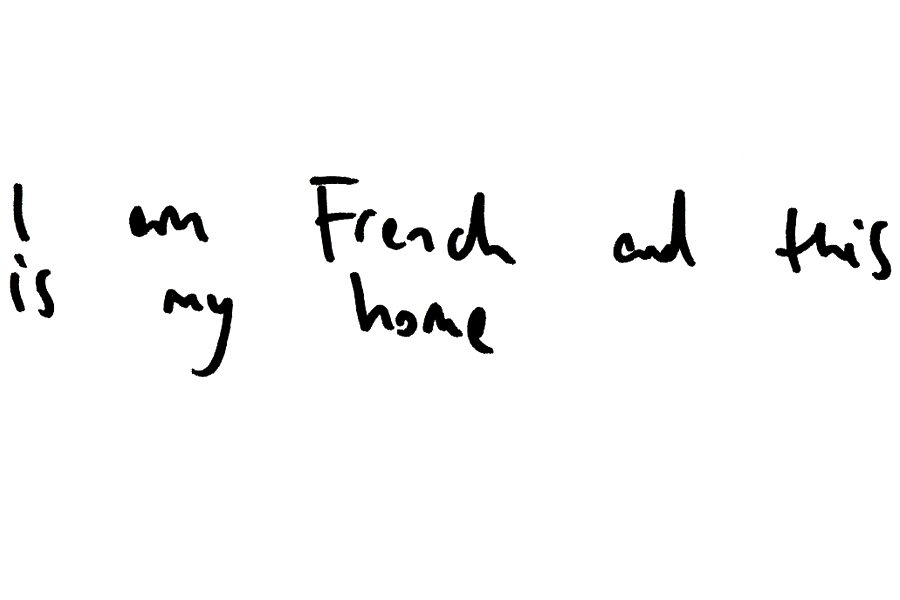 I am French and this
is my home